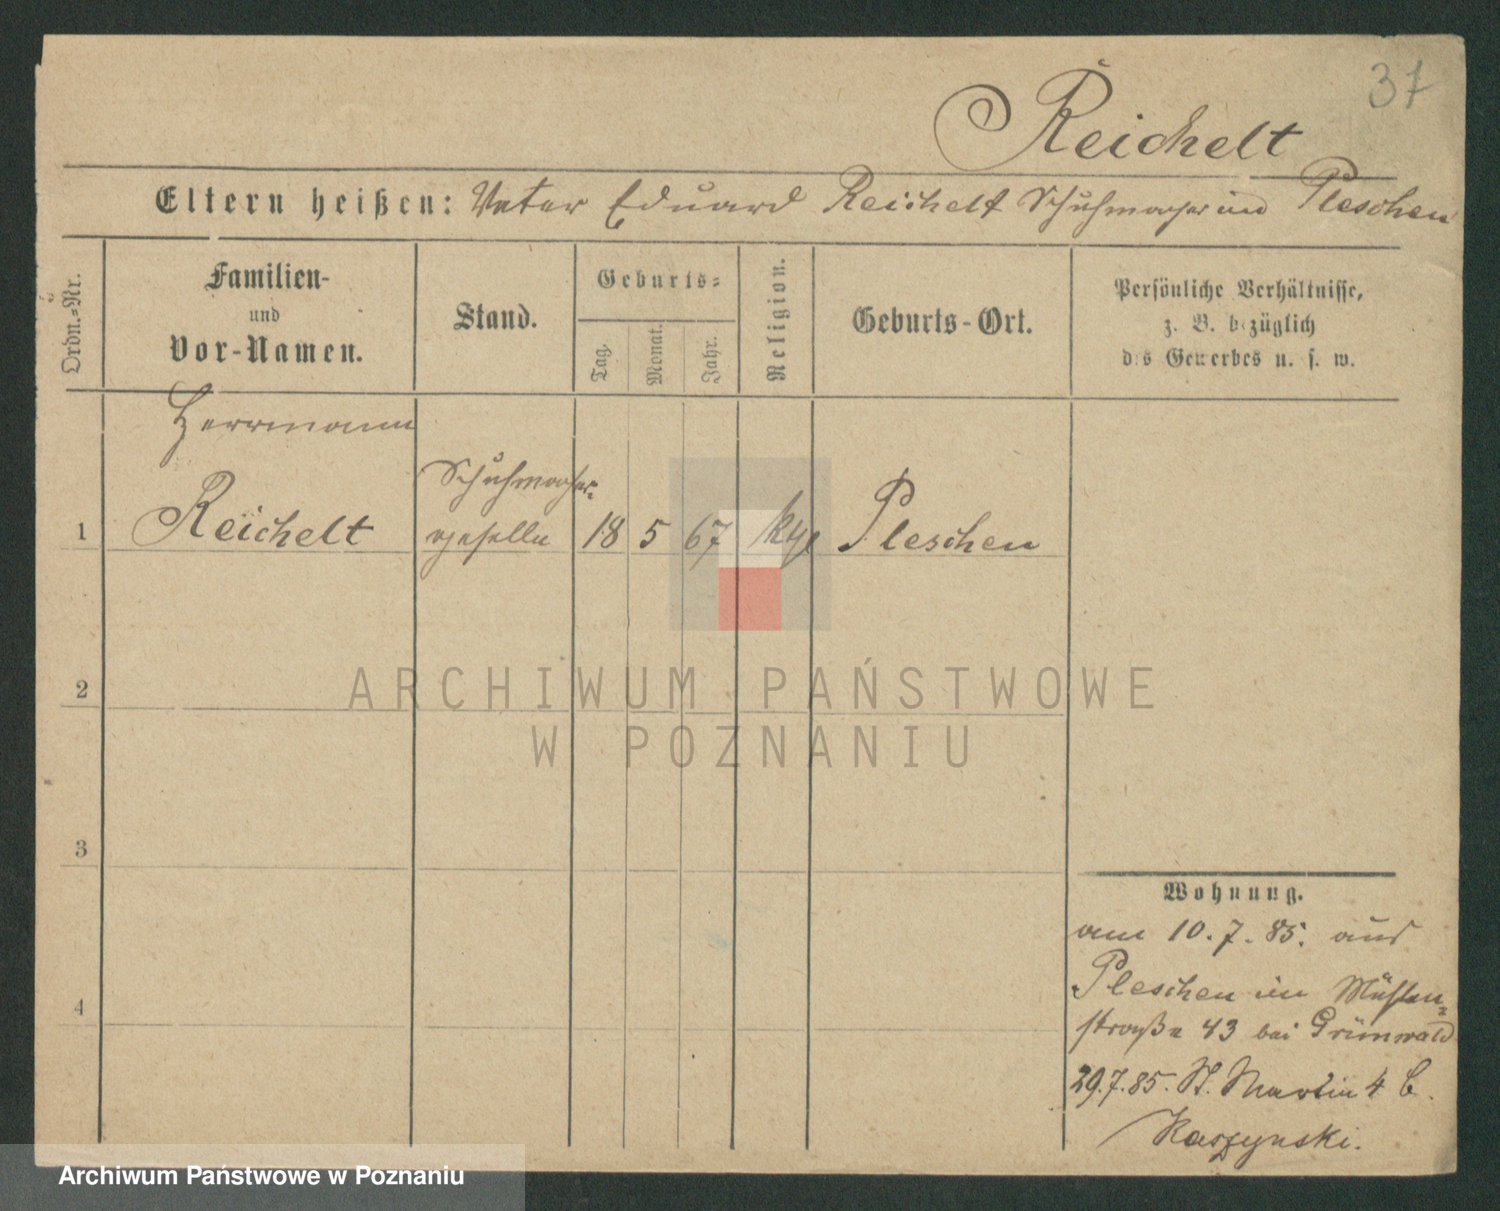 37
Reichelt
Eltern heißen: Vater Eduard Reichelt Schuhmacher in Pleschen
Ordn.-Nr.
Familien-
und
Vor-Namen.
Stand.
Geburts-
Tag.
Monat.
Jahr.
Religion.
Geburts-Ort.
Persönliche Verhältnisse,
z. B. bezüglich
des Gewerbes u. s. w.
Herrmann
1 Reichelt
Schuhmacher-
geselle
18 5 67
Pleschen
2
3
4
Wohnung.
am 10. 7. 85. aus
Pleschen in Mühlen-
straße 43 bei Grünwald
29.7.85. St. Martin 4 b.
Kaszynski.
ARCHIWUM PAŃSTWOWE
W POZNANIU
Archiwum Państwowe w Poznaniu